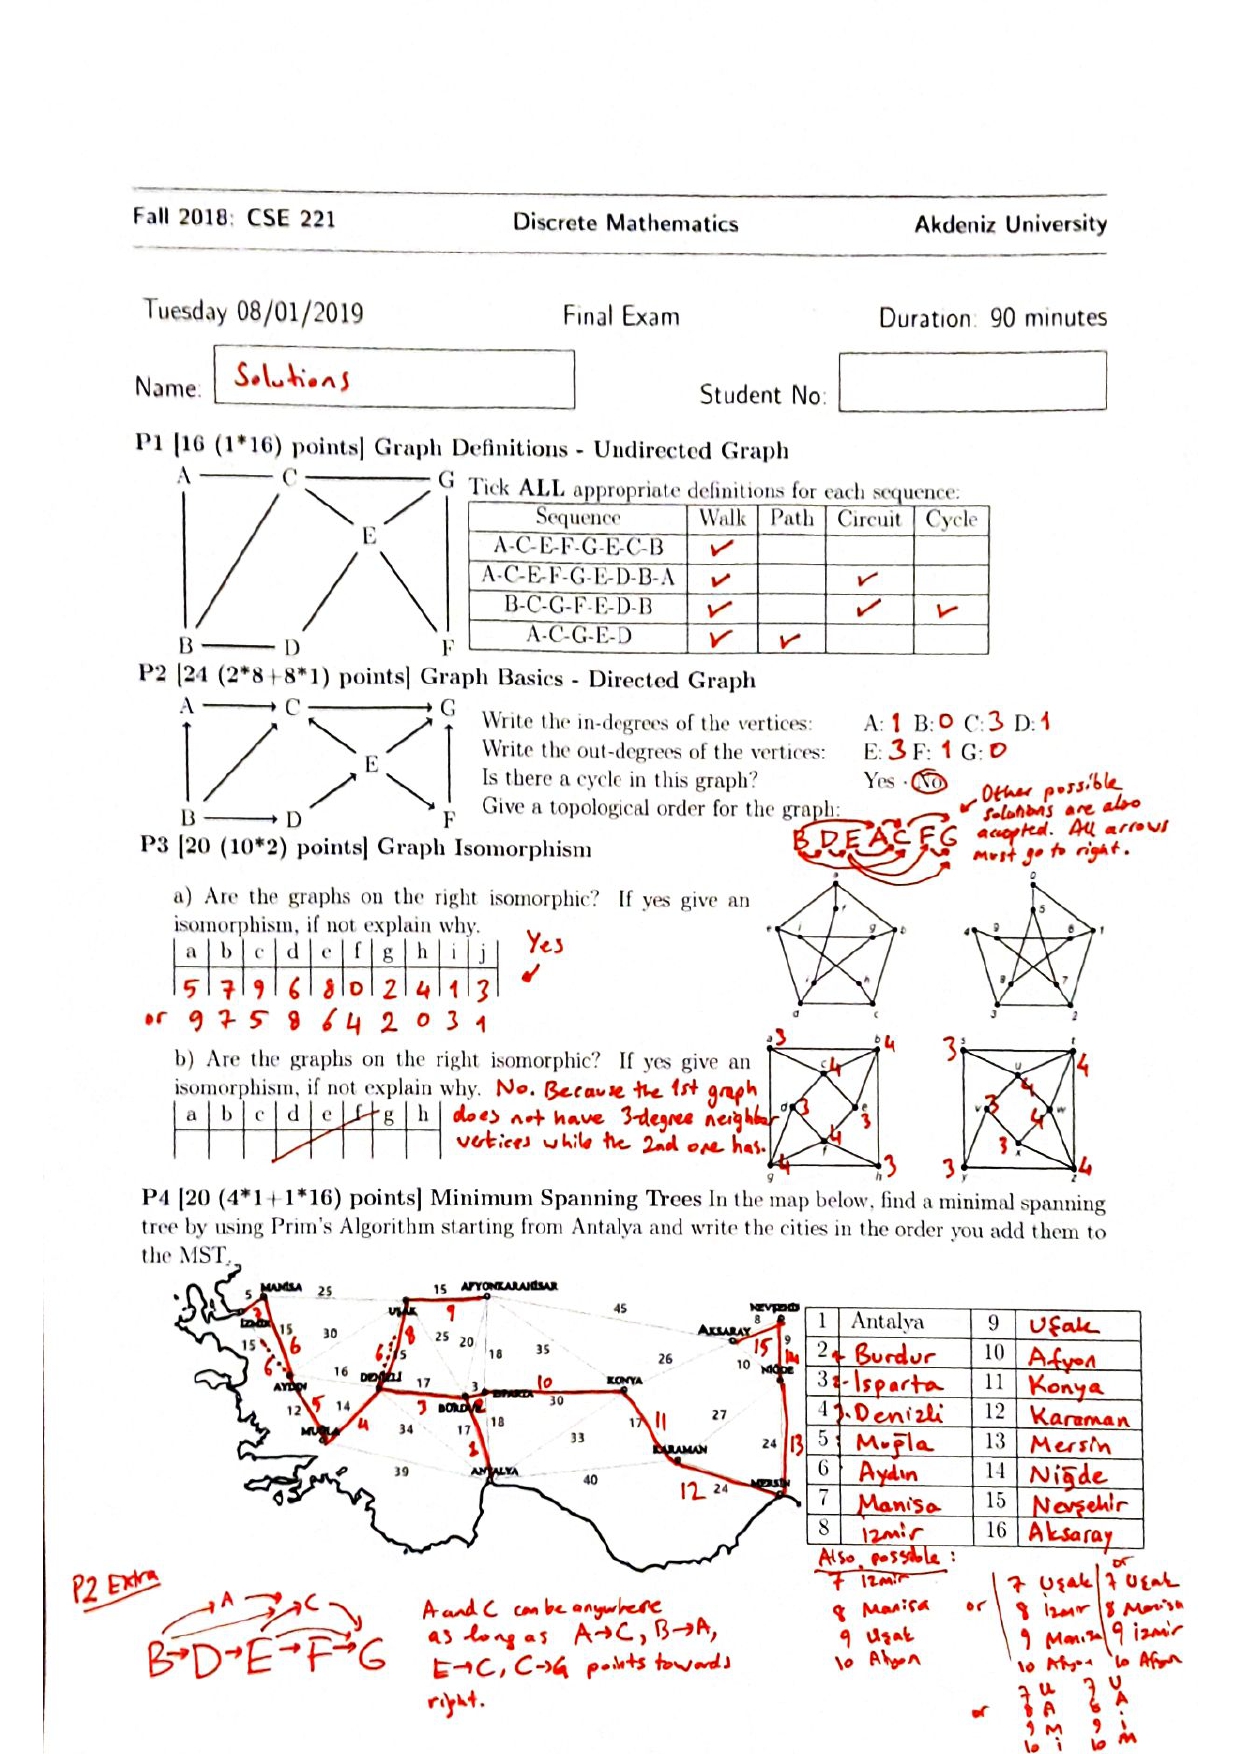 Fall 2018: CSE 221 Discrete Mathematics Akdeniz University
Tuesday 08/01/2019 Final Exam Duration: 90 minutes
Name: Solutions Student No:
P1 [16 (1*16) points] Graph Definitions - Undirected Graph
A C G
E
B D F
Tick ALL appropriate definitions for each sequence:
Sequence Walk Path Circuit Cycle
A-C-E-F-G-E-C-B ✓
A-C-E-F-G-E-D-B-A ✓ ✓
B-C-G-F-E-D-B ✓ ✓ ✓
A-C-G-E-D ✓ ✓
P2 [24 (2*8+8*1) points] Graph Basics - Directed Graph
A C G
E
B D F
Write the in-degrees of the vertices: A: 1 B: 0 C: 3 D: 1
Write the out-degrees of the vertices: E: 3 F: 1 G: 0
Is there a cycle in this graph? Yes - No
Give a topological order for the graph:
B D E A C F G
Other possible
solutions are also
accepted. All arrows
must go to right.
P3 [20 (10*2) points] Graph Isomorphism
a) Are the graphs on the right isomorphic? If yes give an
isomorphism, if not explain why.
a b c d e f g h i j
5 7 9 6 8 0 2 4 1 3
or 9 7 5 8 6 4 2 0 3 1
Yes
✓
a
f
e i g b
j h
d c
0
5
4 9 6 1
8 7
3 2
b) Are the graphs on the right isomorphic? If yes give an
isomorphism, if not explain why. No. Because the 1st graph
does not have 3-degree neighbor
vertices while the 2nd one has.
a b c d e f g h
a 3 b 4
c 4
d 3 e 3
f 4
g 4 h 3
3 s t 4
u 4
v 3 w 4
3 x
3 y z 4
P4 [20 (4*1+1*16) points] Minimum Spanning Trees In the map below, find a minimal spanning
tree by using Prim's Algorithm starting from Antalya and write the cities in the order you add them to
the MST.
5 MANİSA 25 UŞAK 15 AFYONKARAHİSAR 45 NEVŞEHİR
İZMİR 15 30 25 20 18 35 AKSARAY 8 9
15 AYDIN 16 DENİZLİ 15 17 3 ISPARTA 30 KONYA 26 10 NİĞDE
12 MUĞLA 14 34 BURDUR 17 18 33 17 KARAMAN 27 24
39 ANTALYA 40 24 MERSİN
1 Antalya 9 Uşak
2 Burdur 10 Afyon
3 Isparta 11 Konya
4 Denizli 12 Karaman
5 Muğla 13 Mersin
6 Aydın 14 Niğde
7 Manisa 15 Nevşehir
8 Izmir 16 Aksaray
Also possible:
7 Izmir
8 Manisa
9 Uşak
10 Afyon
or
7 Uşak
8 Izmir
9 Manisa
10 Afyon
or
7 Uşak
8 Manisa
9 izmir
10 Afyon
or
7 U 7 U
8 A 8 A
9 M 9 i
10 i 10 M
P2 Extra
A C
B→D→E→F→G
A and C can be anywhere
as long as A→C, B→A,
E→C, C→G points towards
right.